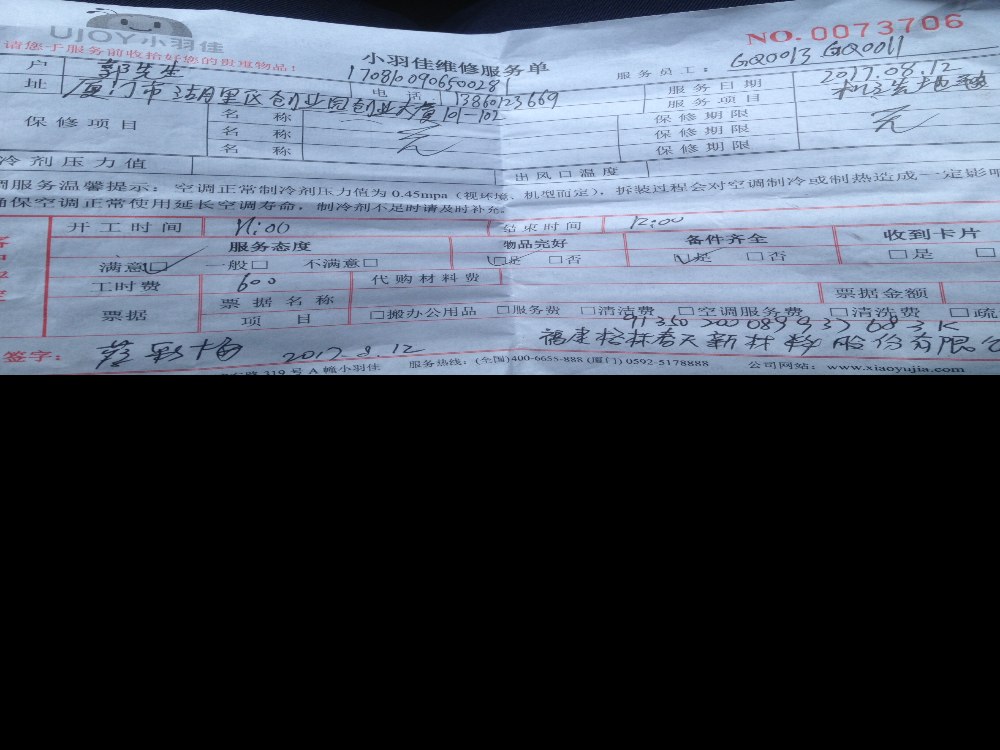 UJOY小羽佳
NO.0073706
请您于服务前收拾好您的贵重物品！
小羽佳维修服务单
服务员工： GQ0013 GQ0011
户 郭先生 170860906500281
服务日期 2017.08.12
址 厦门市湖里区创业园创业大厦101-102 电话 13860123669
服务项目
保修项目 名称 无 保修期限 无
名称 保修期限
名称 保修期限
冷剂压力值 出风口温度
调服务温馨提示：空调正常制冷剂压力值为 0.45mpa（视环境、机型而定），拆装过程会对空调制冷或制热造成一定影响
确保空调正常使用延长空调寿命，制冷剂不足时请及时补充。
开工时间 11:00 结束时间 12:00
服务态度 物品完好 备件齐全 收到卡片
满意□ 一般□ 不满意□ □是 □否 □是 □否 □是 □
工时费 600 代购材料费
票据 票据名称 票据金额
项目 □搬办公用品 □服务费 □清洁费 □空调服务费 □清洗费 □疏
签字： 2017.8.12 福建 春天新材料股份有限公
319号A幢小羽佳 服务热线：(全国)400-6655-888 (厦门) 0592-5178888 公司网站：www.xiaoyujia.com